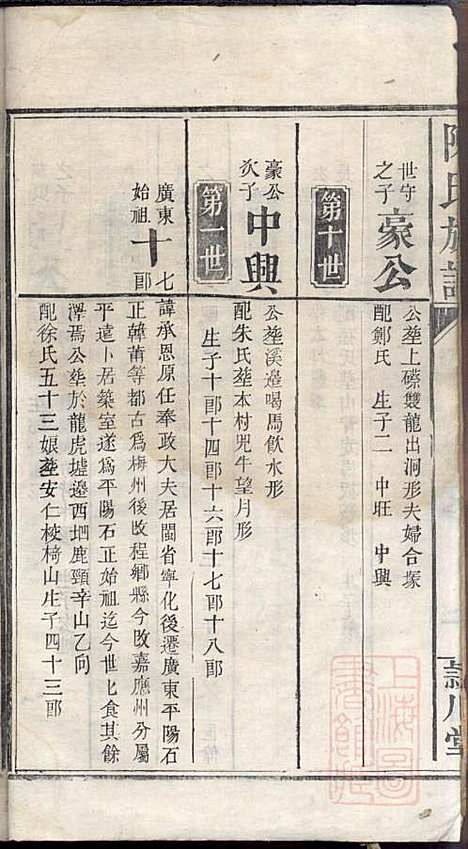 陳氏族譜
世守
之子
豪公
公塟上磜雙龍出洞形夫婦合塚
配鄭氏 生子二 中旺 中興
第十世
豪公
次子
中興
公塟溪邊喝馬飲水形
配朱氏塟本村兕牛望月形
生子十郎十四郎十六郎十七郎十八郎
第一世
廣東
始祖
十七郎
諱承恩原任奉政大夫居閩省寧化後遷廣東平陽石
正韓莆等都古爲梅州後改程鄉縣今改嘉應州分屬
平遠卜居築室遂爲平陽石正始祖迄今世匕食其餘
澤焉公塟於龍虎墟邊西坥鹿頸辛山乙向
配徐氏五十三娘塟安仁棱樟山生子四十三郎
潁川堂
上海圖書館藏